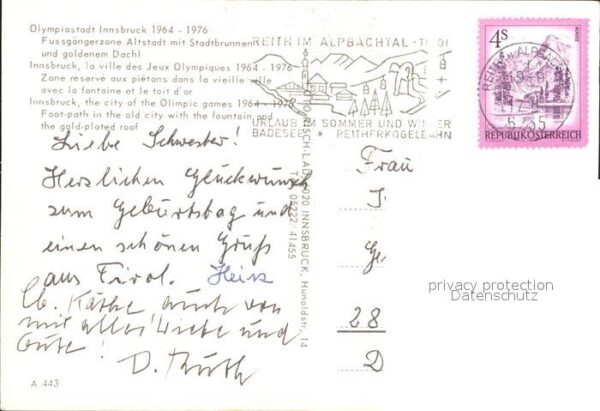 Olympiastadt Innsbruck 1964 - 1976
Fussgängerzone Altstadt mit Stadtbrunnen
und goldenem Dachl
Innsbruck, la ville des Jeux Olympiques 1964 - 1976
Zone reservé aux piétons dans la vieille ville
avec la fontaine et le tait d'or
Innsbruck, the city of the Olimpic games 1964 - 1976
Foot-path in the old city with the fountain and
the gold-plated roof
REITH IM ALPBACHTAL - TIROL
URLAUB IM SOMMER UND WINTER
BADESEE * REITHERKOGELBAHN
4S
REPUBLIK ÖSTERREICH
REITH IM ALPBACHTAL
6235
Liebe Schwester!
Herzlichen Glückwunsch
zum Geburtstag und
einen schönen Gruß
aus Tirol. Heinz
Lb. Käthe, auch von
mir alles Liebe und
Gute!
D. Ruth
6020 INNSBRUCK, Hunoldstr. 14
05222 - 41455
Frau
I.
Ge
28
D
privacy protection
Datenschutz
A 443